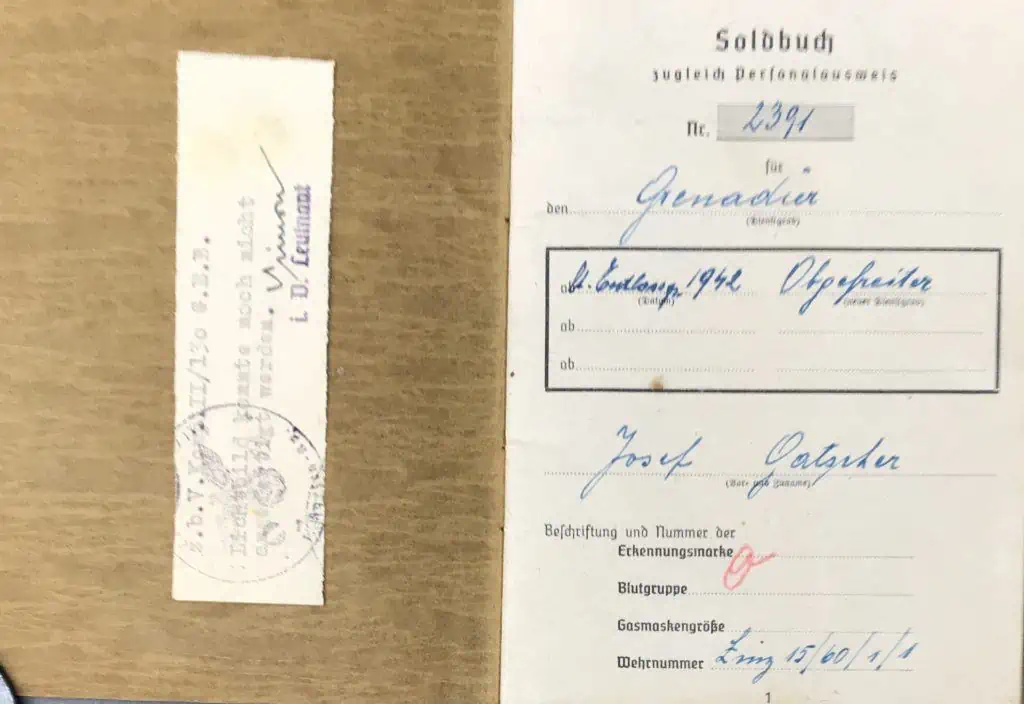 Lichtbild konnte noch nicht
angefertigt werden.
i. V. Leutnant
Soldbuch
zugleich Personalausweis
Nr. 2391
für
den Grenadier
(Dienstgrad)
ab 1942 Obgefreiter
(Datum) (neuer Dienstgrad)
ab
ab
Josef Gatscher
(Vor- und Zuname)
Beschriftung und Nummer der
Erkennungsmarke
Blutgruppe
Gasmaskengröße
Wehrnummer Linz 15/60/1/1
1